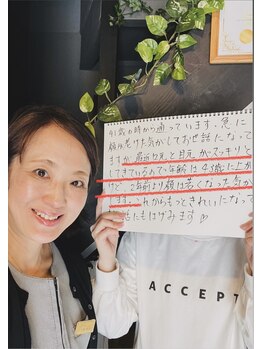 41歳の時から通っています。急に
顔が老けた気がしてお世話になって
ますが、最近口元と目元がスッキリと
してきているので年齢は43歳に上が
けど、2年前より顔は若くなった気が
ます。これからもっときれいになって
活にもはげみます♡
ACCEPT